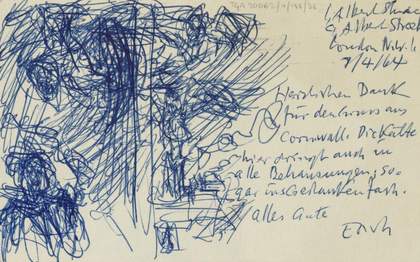 TGA 20062/4/
Albert
9 Albert Street
London NW. 1
7/4/64
Herzlichen Dank
für den Gruss aus
Cornwall. Die Kälte
hier dringt auch in
alle Behausungen; so-
gar ins Gedankenfach.
Alles Gute
Erich